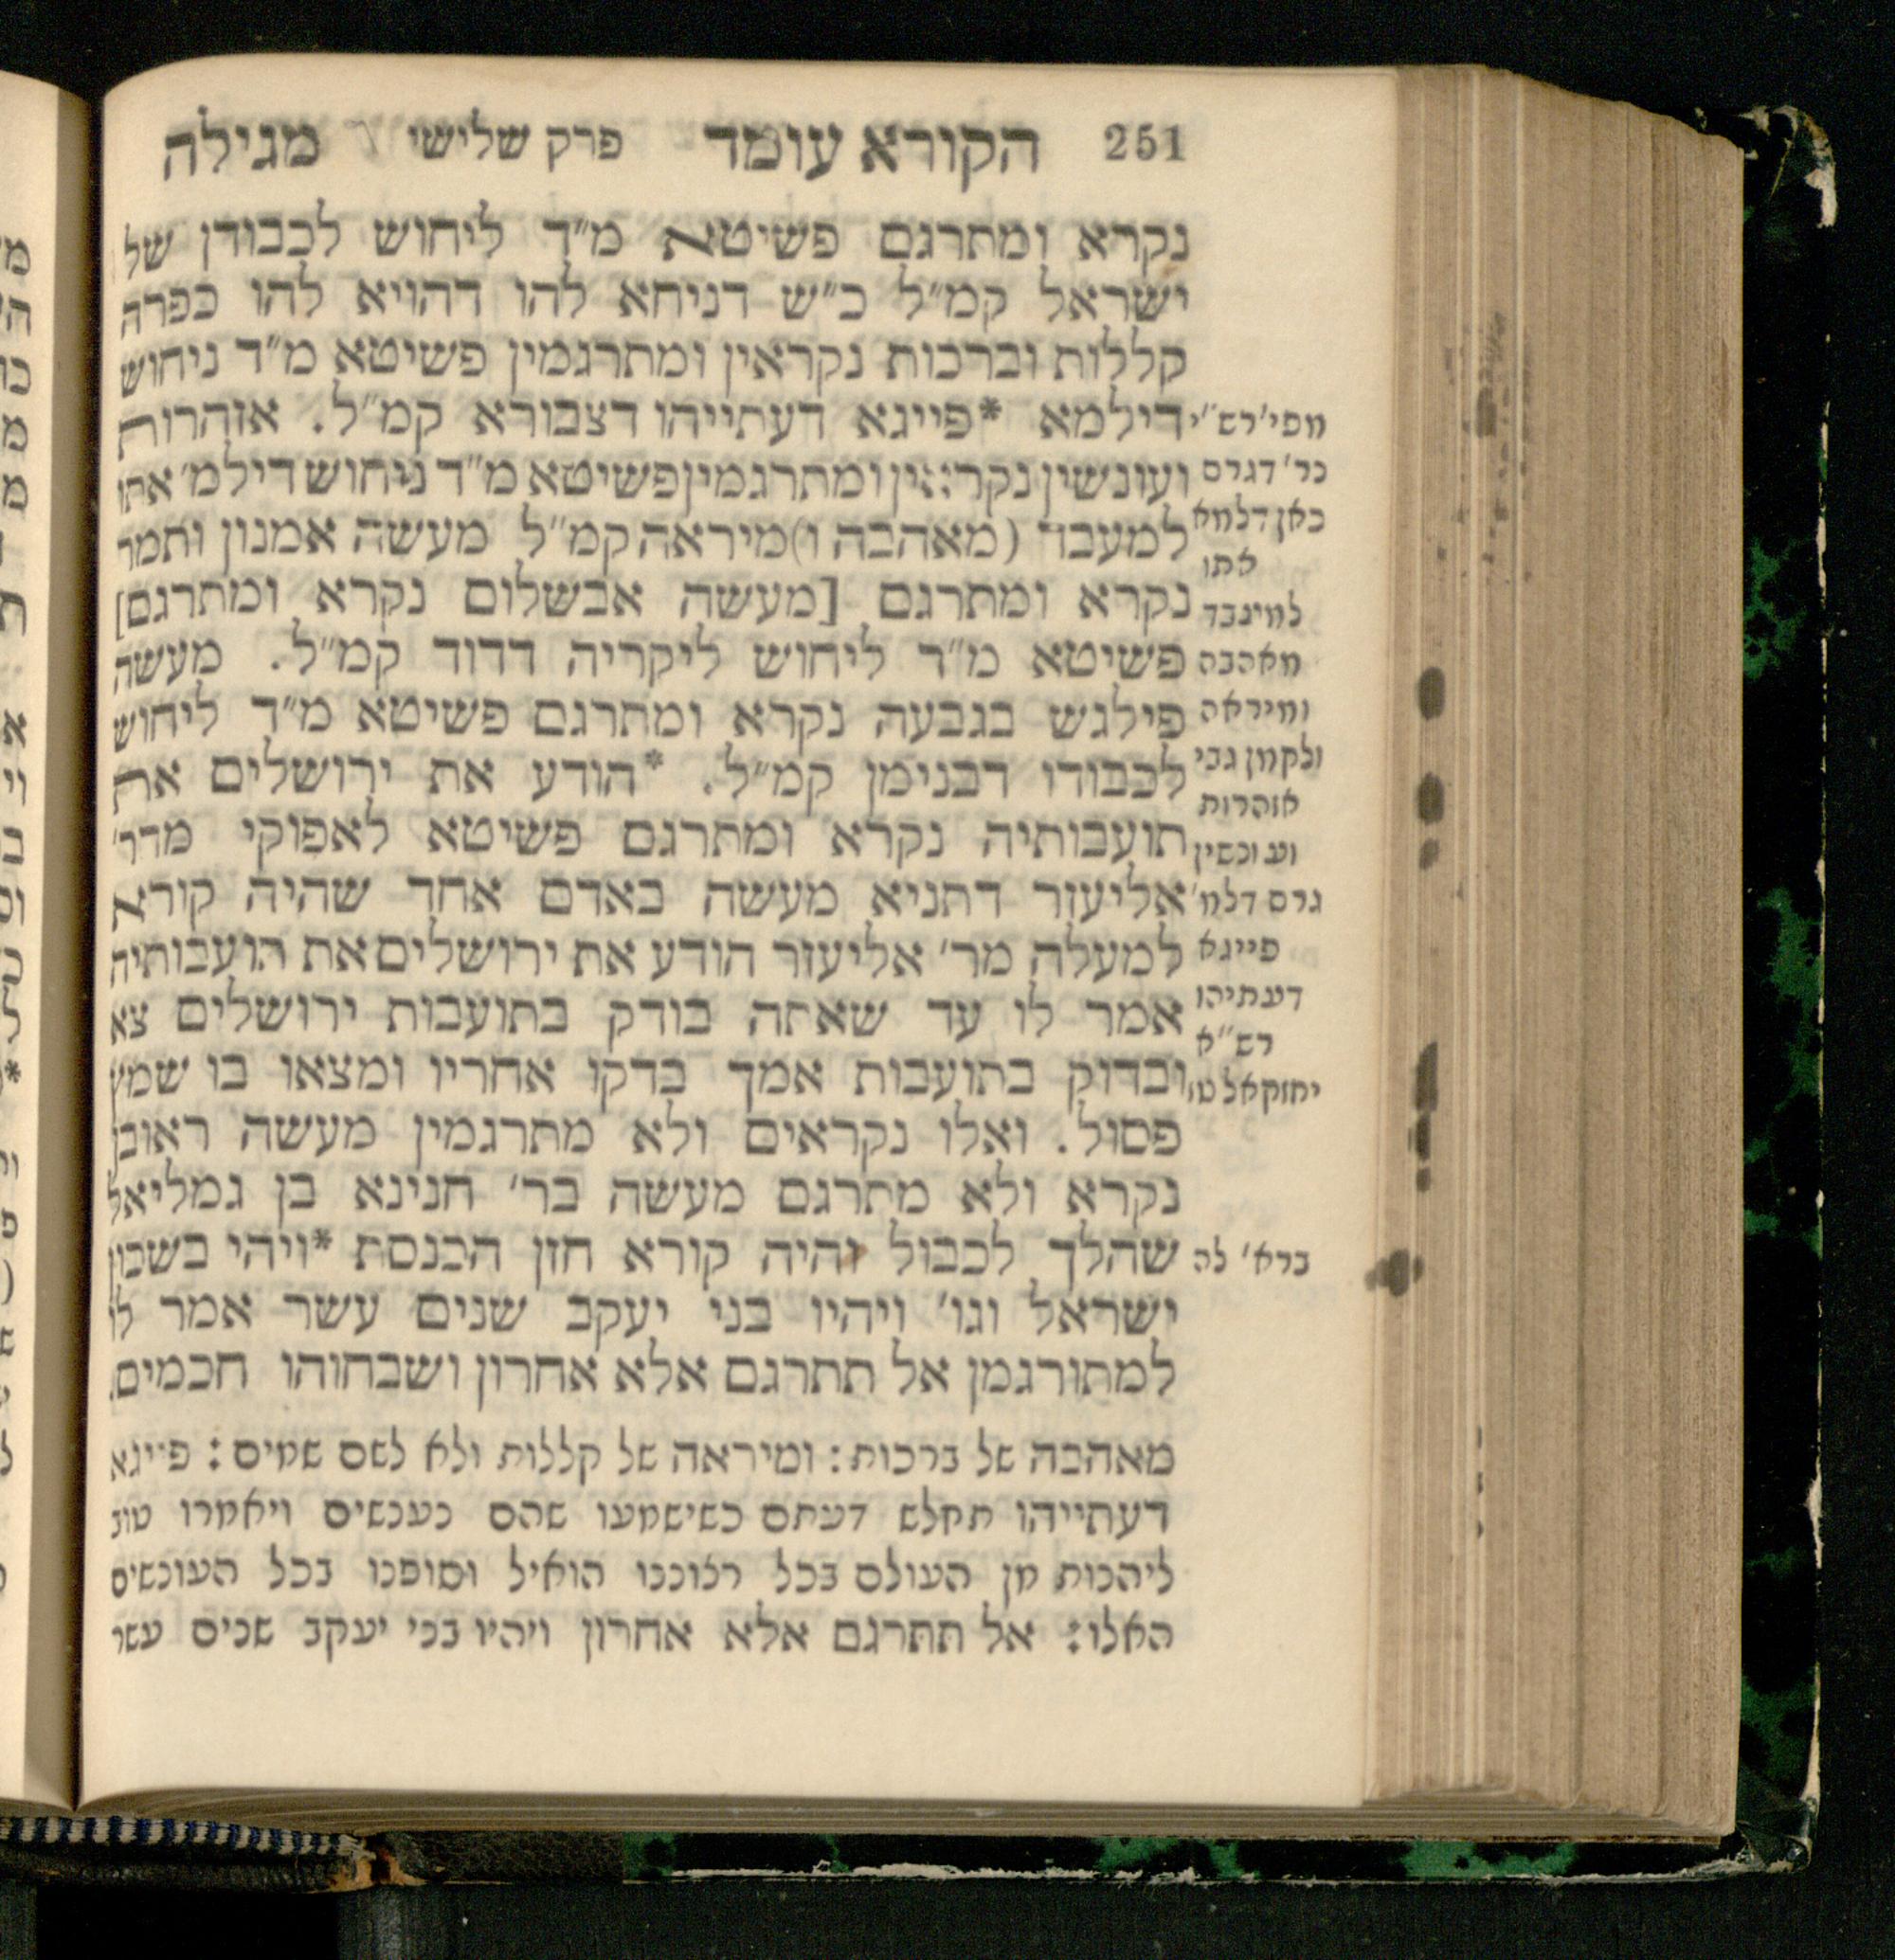 251 הקורא עומד פרק שלישי מגילה
נקרא ומתרגם פשיטא מ״ד ליחוש לכבודן של
ישראל קמ״ל כ״ש דניחא להו דהויא להו כפרה
קללות וברכות נקראין ומתרגמין פשיטא מ״ד ניחוש
דילמא *פייגא דעתייהו דצבורא קמ״ל. אזהרות
ועונשין נקראין ומתרגמין פשיטא מ״ד ניחוש דילמ׳ אתו
למעבד (מאהבה ו)מיראה קמ״ל מעשה אמנון ותמר
נקרא ומתרגם [מעשה אבשלום נקרא ומתרגם]
פשיטא מ״ד ליחוש ליקריה דדוד קמ״ל. מעשה
פילגש בגבעה נקרא ומתרגם פשיטא מ״ד ליחוש
לכבודו דבנימן קמ״ל. *הודע את ירושלים את
תועבותיה נקרא ומתרגם פשיטא לאפוקי מדר׳
אליעזר דתניא מעשה באדם אחד שהיה קורא
למעלה מר׳ אליעזר הודע את ירושלים את תועבותיה
אמר לו עד שאתה בודק בתועבות ירושלים צא
ובדוק בתועבות אמך בדקו אחריו ומצאו בו שמץ
פסול. ואלו נקראים ולא מתרגמין מעשה ראובן
נקרא ולא מתרגם מעשה בר׳ חנינא בן גמליאל
שהלך לכבול והיה קורא חזן הכנסת *ויהי בשכון
ישראל וגו׳ ויהיו בני יעקב שנים עשר אמר לו
למתורגמן אל תתרגם אלא אחרון ושבחוהו חכמים.
מפי׳ רש״י
נר׳ דגרס
כאן דלמא
אתו
למיעבד
מאהבה
ומיראה
ולקמן גבי
אזהרות
ועונשין
גרס דלמ׳
פייגא
דעתיהו
רש״א
יחזקאל טז
ברא׳ לה
מאהבה של ברכות: ומיראה של קללות ולא לשם שמים: פייגא
דעתייהו תחלש דעתם כשישמעו שהם נענשים ויאמרו טוב
ליהנות מן העולם בכל רצוננו הואיל וסופנו בכל העונשים
האלו: אל תתרגם אלא אחרון ויהיו בני יעקב שנים עשר